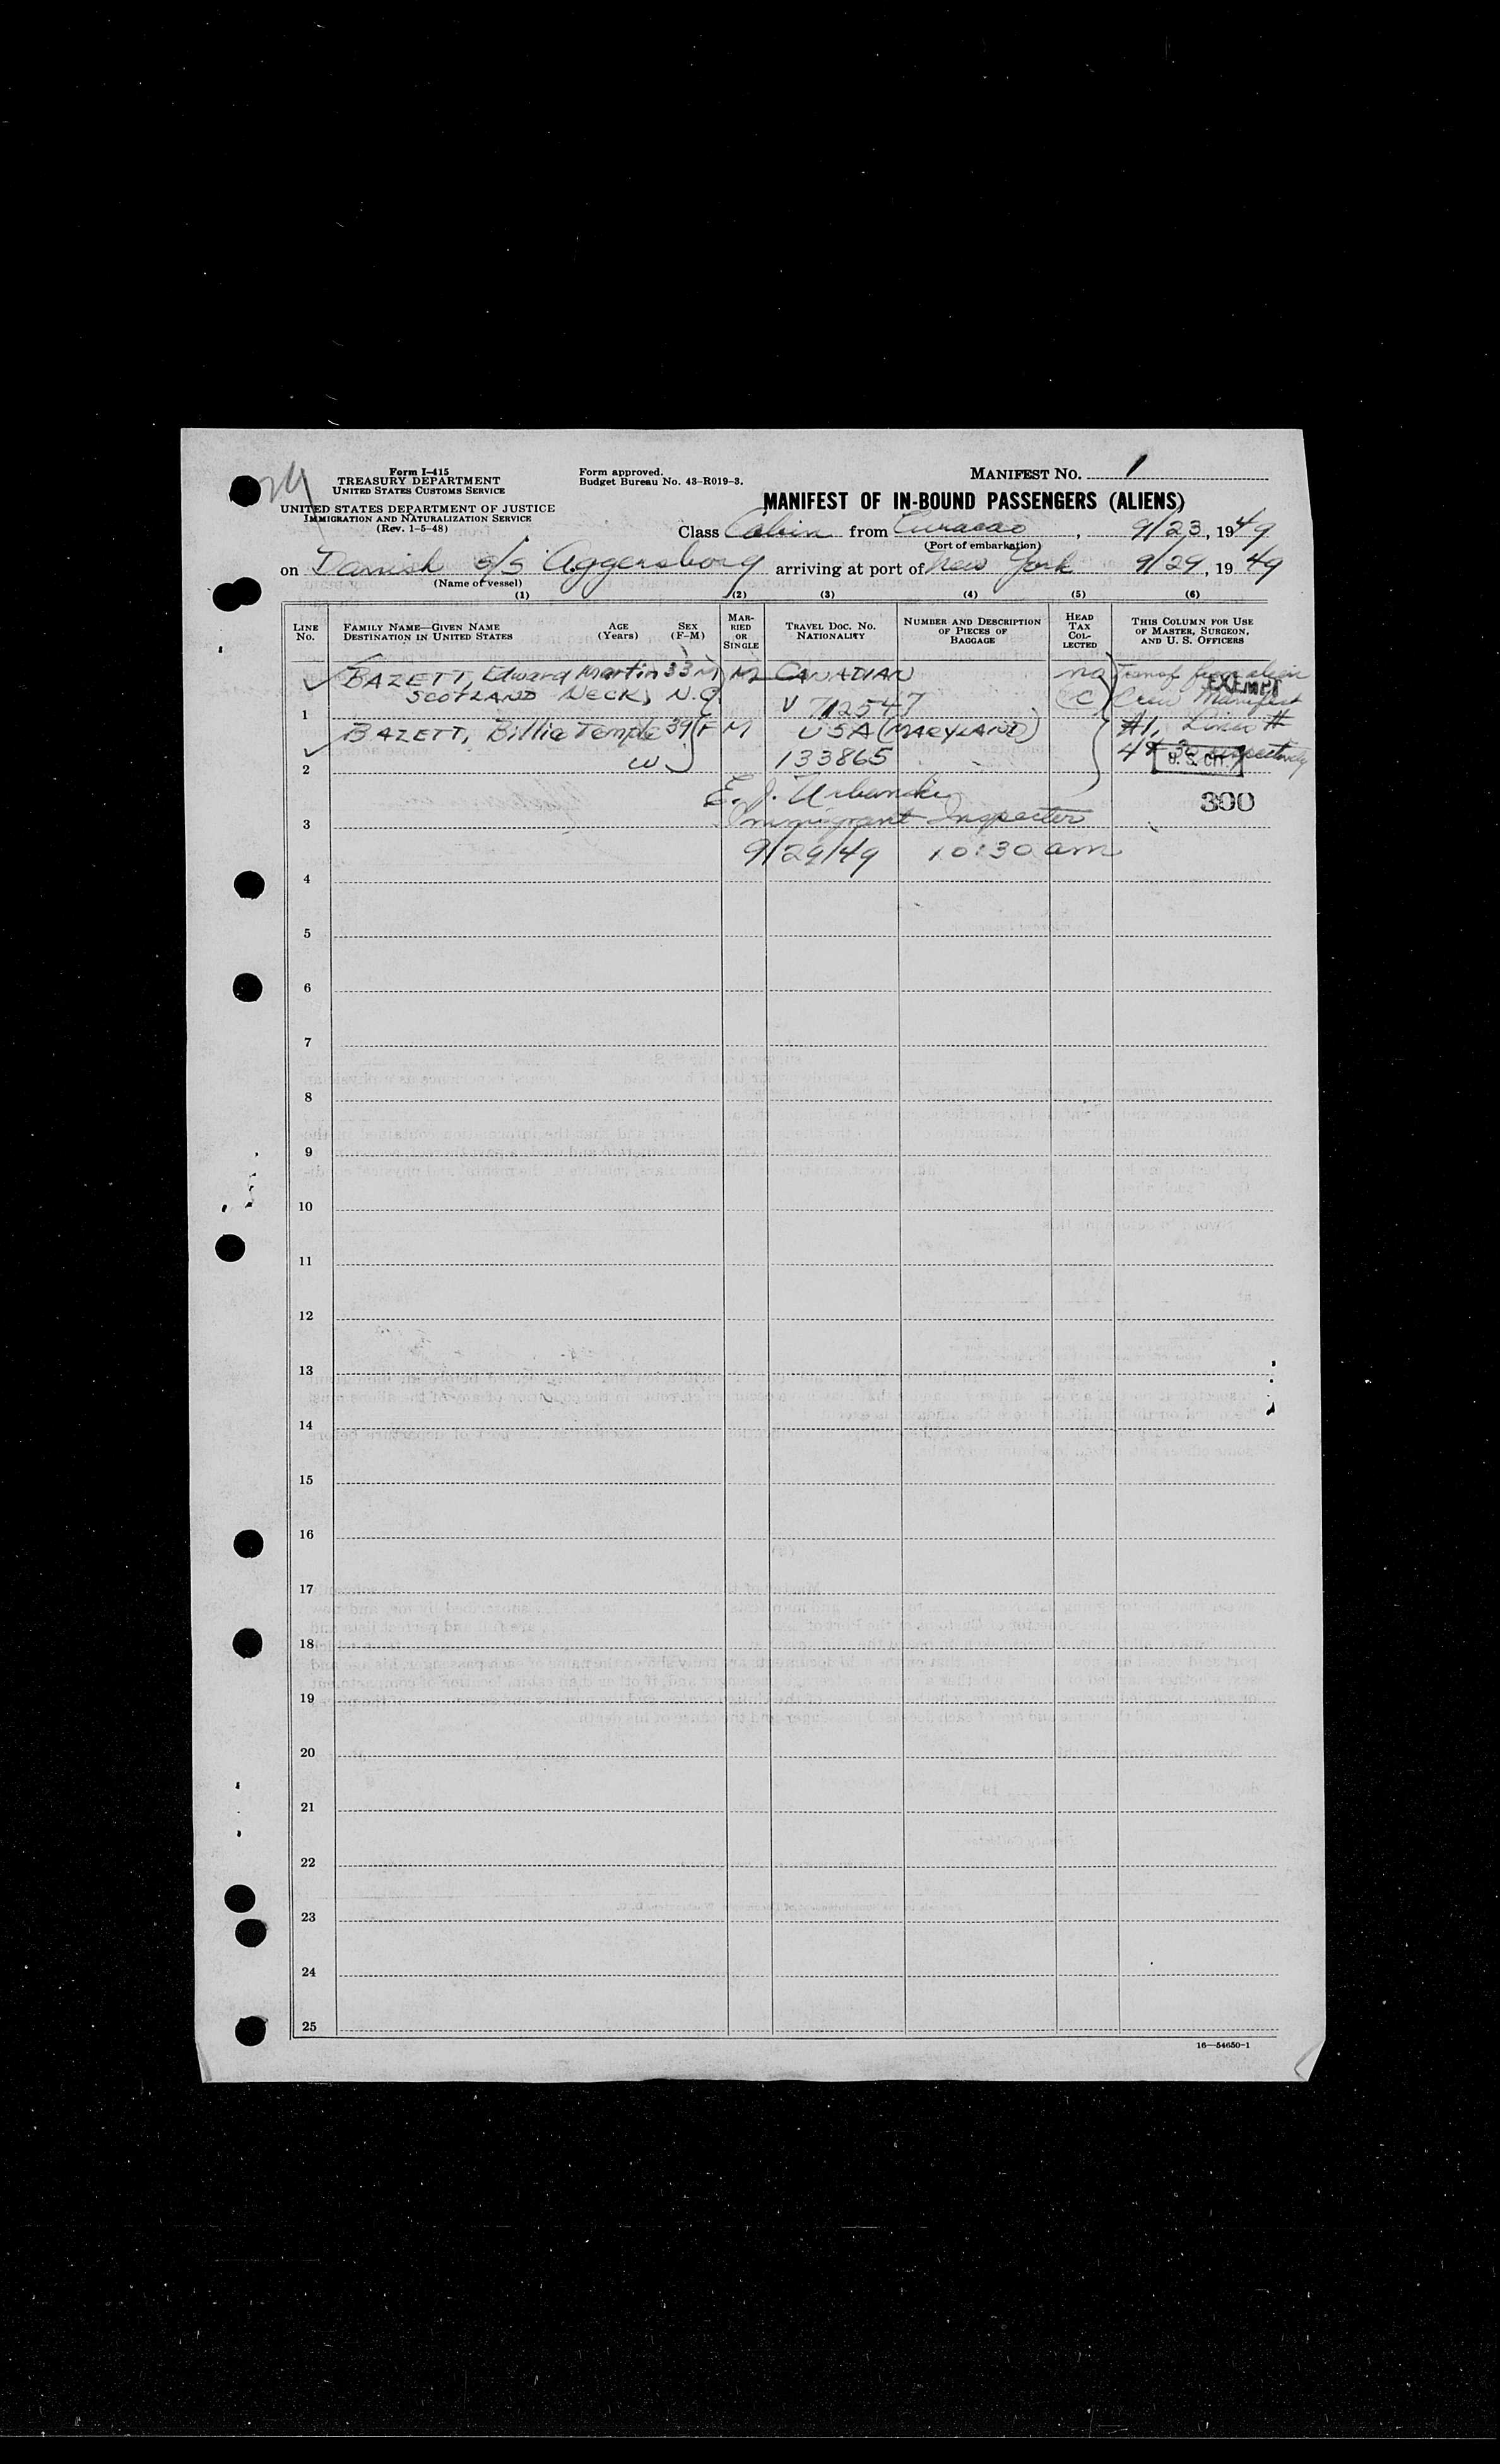 Form I-415
TREASURY DEPARTMENT
UNITED STATES CUSTOMS SERVICE
UNITED STATES DEPARTMENT OF JUSTICE
IMMIGRATION AND NATURALIZATION SERVICE
(Rev. 1-5-48)
Form approved.
Budget Bureau No. 43-R019-3.
MANIFEST NO. 1
MANIFEST OF IN-BOUND PASSENGERS (ALIENS)
Class Cabin from Curacao, 9/23, 1949
(Port of embarkation)
on Danish s/s Aggersborg arriving at port of New York 9/29, 1949
(Name of vessel)
(1) (2) (3) (4) (5) (6)
LINE NO.
FAMILY NAME—GIVEN NAME
DESTINATION IN UNITED STATES
AGE (Years)
SEX (F-M)
MARRIED OR SINGLE
TRAVEL DOC. NO. NATIONALITY
NUMBER AND DESCRIPTION OF PIECES OF BAGGAGE
HEAD TAX COLLECTED
THIS COLUMN FOR USE OF MASTER, SURGEON, AND U. S. OFFICERS
BAZETT, Edward Martin 33 M M CANADIAN no Transf from alien
EXEMPT
1 SCOTLAND NECK, N.C. V 712547 (C) Crew Manifest
BAZETT, Billie Temple 39 F M USA (MARYLAND) #1, Lines #
2 W 133865 4 & 30 respectively
U. S. CIT.
300
E. J. Urbanski
3 Immigrant Inspector
9/29/49 10:30 am
4
5
6
7
8
9
10
11
12
13
14
15
16
17
18
19
20
21
22
23
24
25
16—54650-1